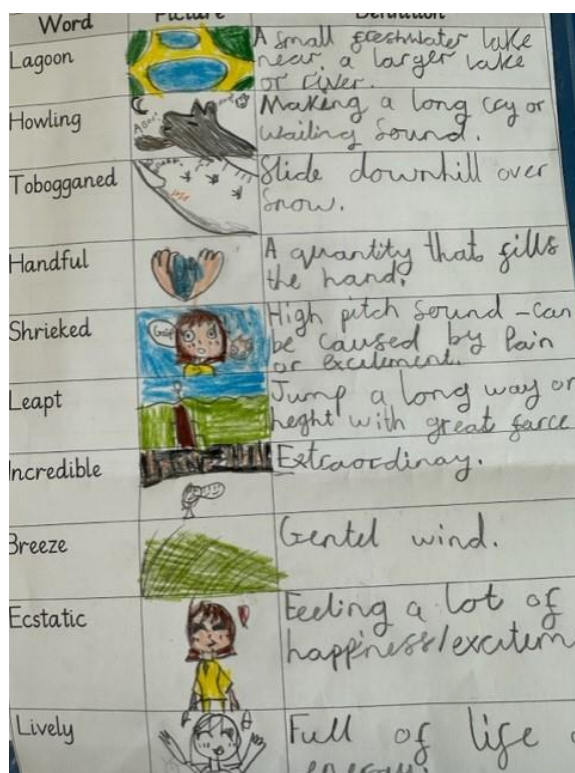 Word Picture Definition
Lagoon
A small freshwater lake
near a larger lake
or river.
Howling
Making a long cry or
wailing sound.
Tobogganed
Slide downhill over
Snow.
Handful
A quantity that fills
the hand.
Shrieked
High pitch sound - can
be caused by Pain
or excitement.
Leapt
Jump a long way or
heght with great farce
Incredible
Extraordinay.
Breeze
Gentel wind.
Ecstatic
Feeling a lot of
happiness/excitem
Lively
Full of life
energy.